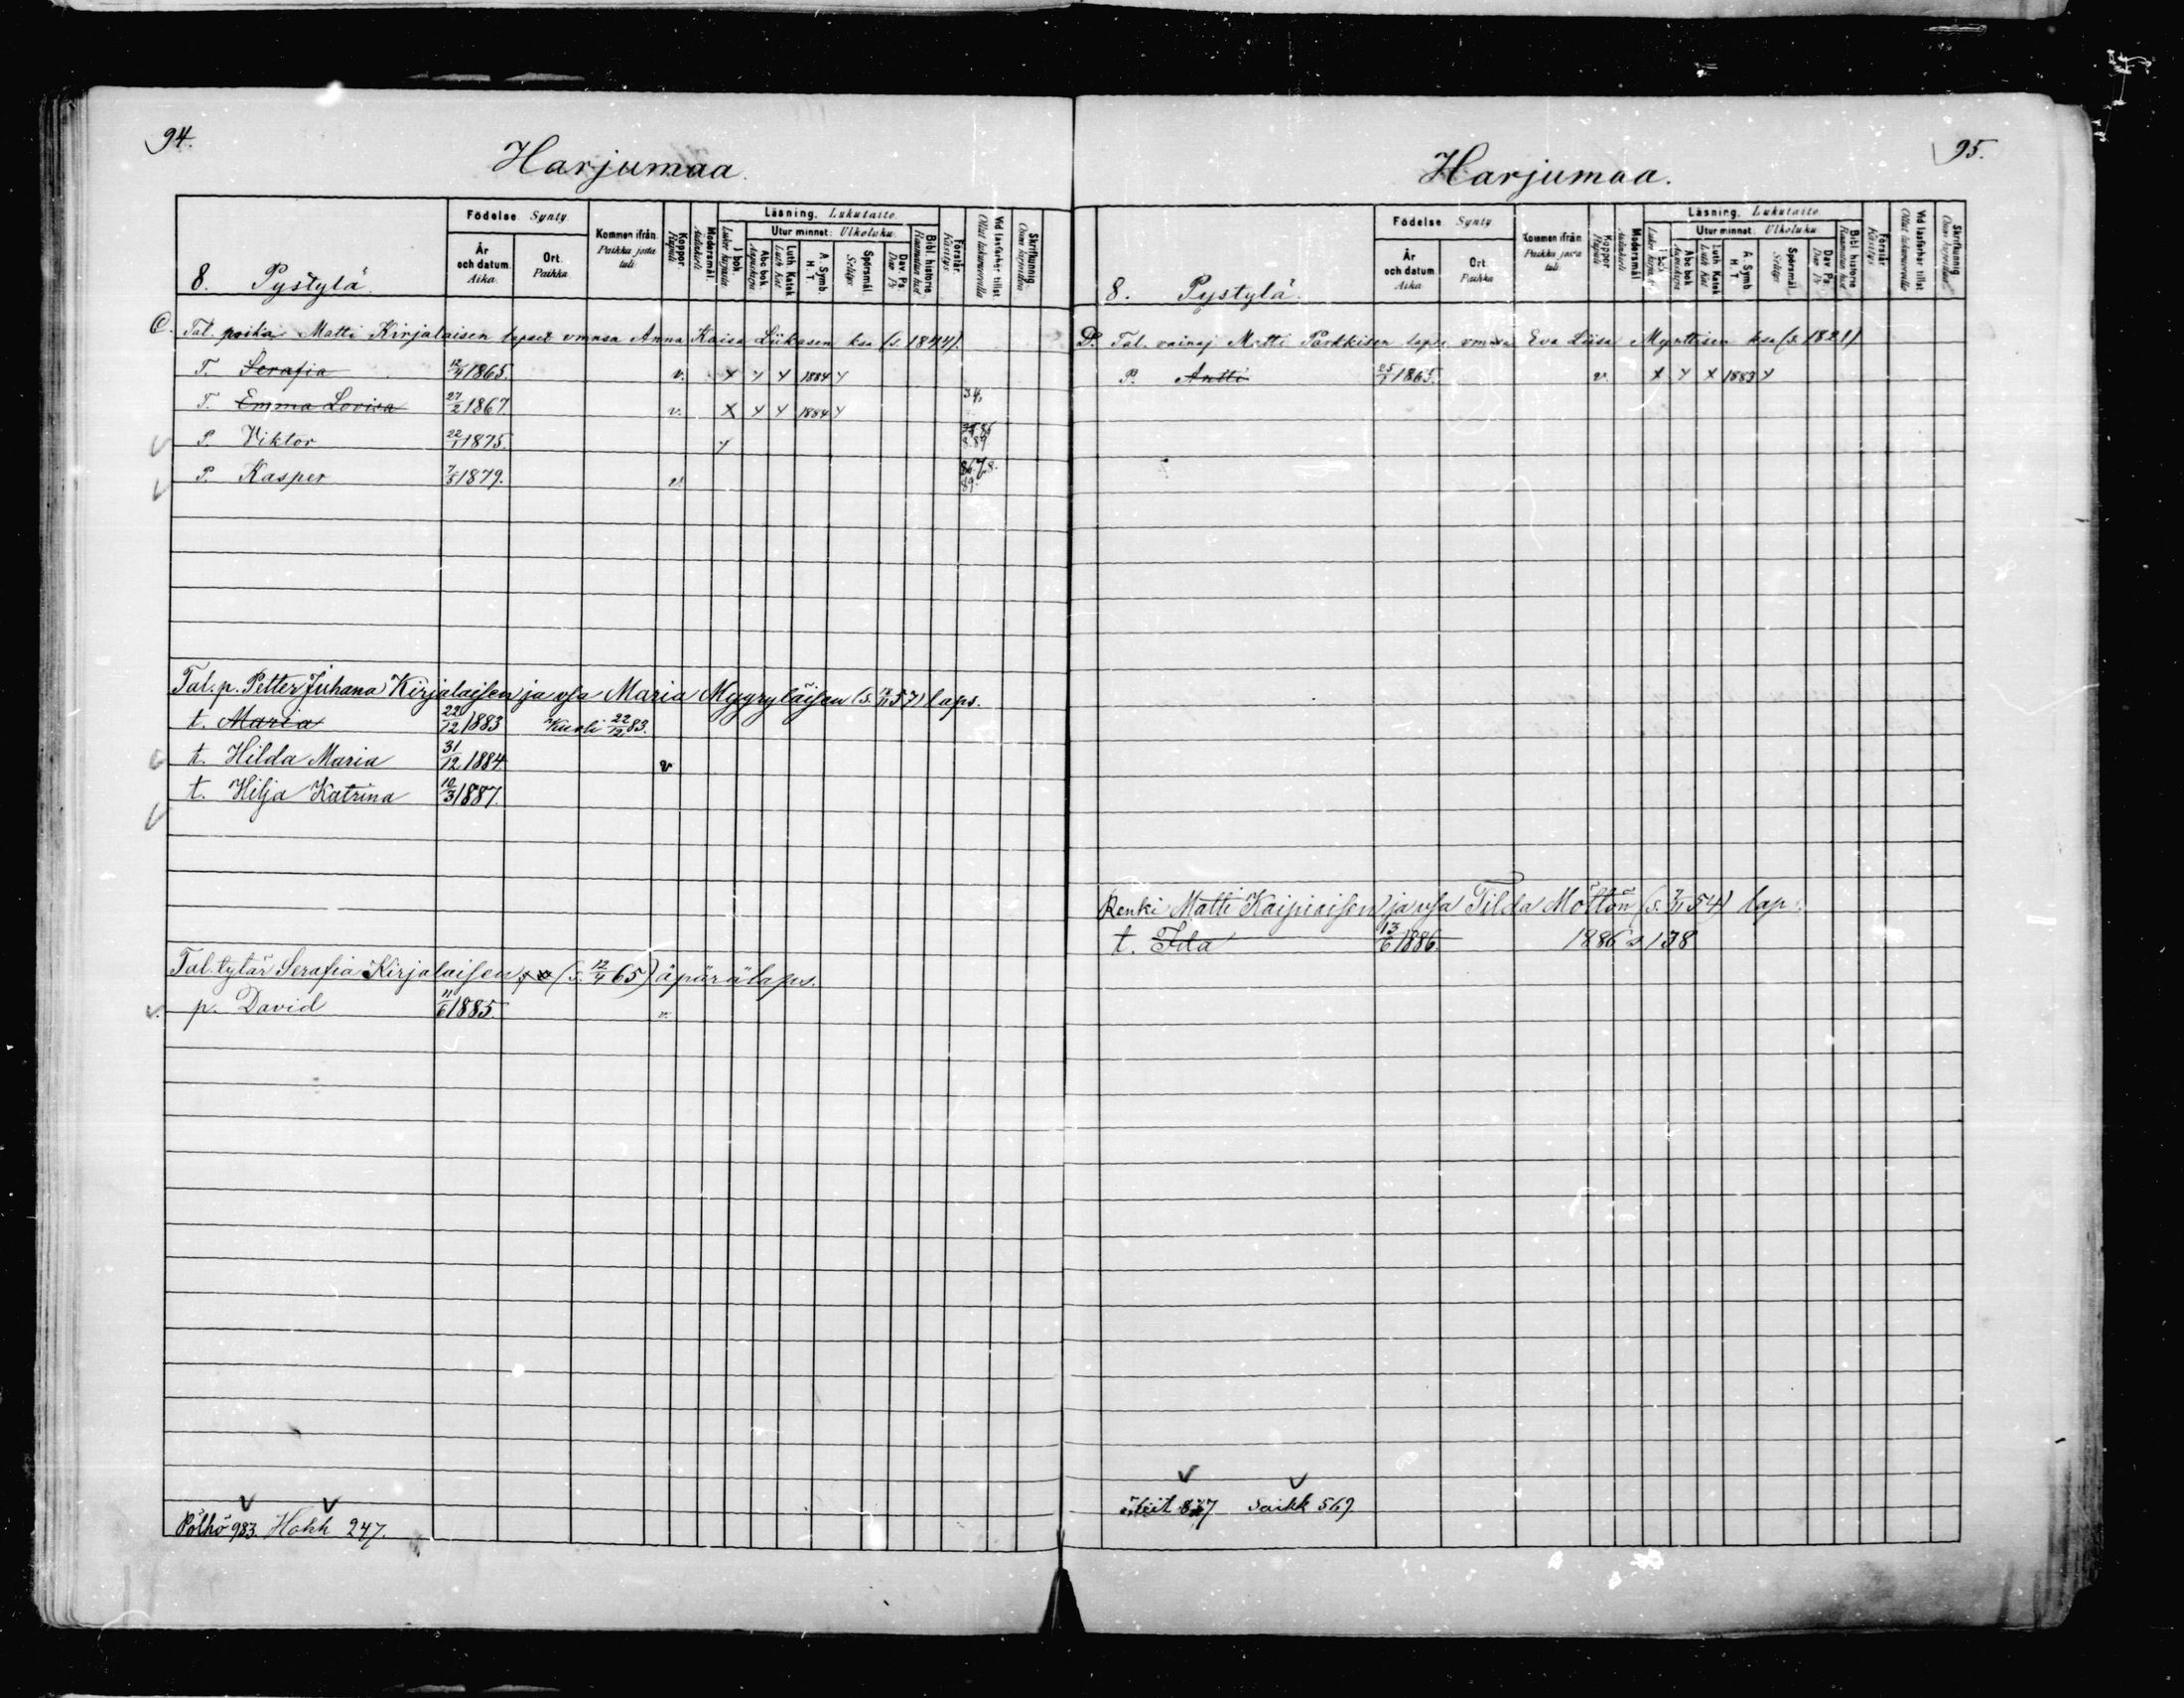 94.
Harjumaa.
8. Pystylä.
Födelse. Synty.
År och datum. Aika.
Ort. Paikka.
Kommen ifrån. Paikka josta tuli.
Koppor. Rupuli
Modersmål.
Läsning. Lukutaito.
I bok.
Utur minnet: Ulkoluku.
Abc bok.
Luth. Katek.
A. Symb. H. T.
Spörsmål. Selitys.
Dav. Ps.
Bibl. historie
Förstår. Käsitys.
Vid läsförhör tillst.
Skrifkunnig.
C. Tal. poika Matti Kirjalaisen lapset vmnsa Anna Kaisa Liikasen ksa (s. 1844).
T. Serafia 12/4 1865. v. x y y 1884 y
T. Emma Lovisa 27/2 1867 v. x y y 1884 y 34,
P. Viktor 22/1 1875. y
P. Kasper 7/5 1879. v.
Tal. p. Petter Juhana Kirjalaisen ja vsa Maria Myyryläisen (s. 57) laps.
t. Maria 22/12 1883 Kuoli 22/12 83.
t. Hilda Maria 31/12 1884 v
t. Hilja Katrina 10/3 1887.
Tal. tytär Serafia Kirjalaisen (s. 12/4 65) äpärälaps.
p. David 11/6 1885. v.
Pölhö 983. Hohh 247.
95.
Harjumaa.
8. Pystylä.
Födelse Synty
År och datum Aika
Ort Paikka
Kommen ifrån Paikka josta tuli
Koppor
Modersmål
Läsning. Lukutaito.
Utur minnet: Ulkoluku
Abc bok
Luth Katek
A. Symb. H. T.
Spörsmål. Selitys
Dav. Ps.
Bibl. historie
Förstår Käsitys
Vid läsförhör tillst
Skrifkunnig
D. Tal. vainaj Matti Parkkisen lapsi vmnsa Eva Liisa Mynttisen ksa (s. 1821)
P. Antti 25/7 1865. v. x y x 1883 y
Renki Matti Kaipiaisen ja vsa Tilda Möttön (s. 54) lap.
t. Ida 13/6 1886 1886 s 138
Saikk 569